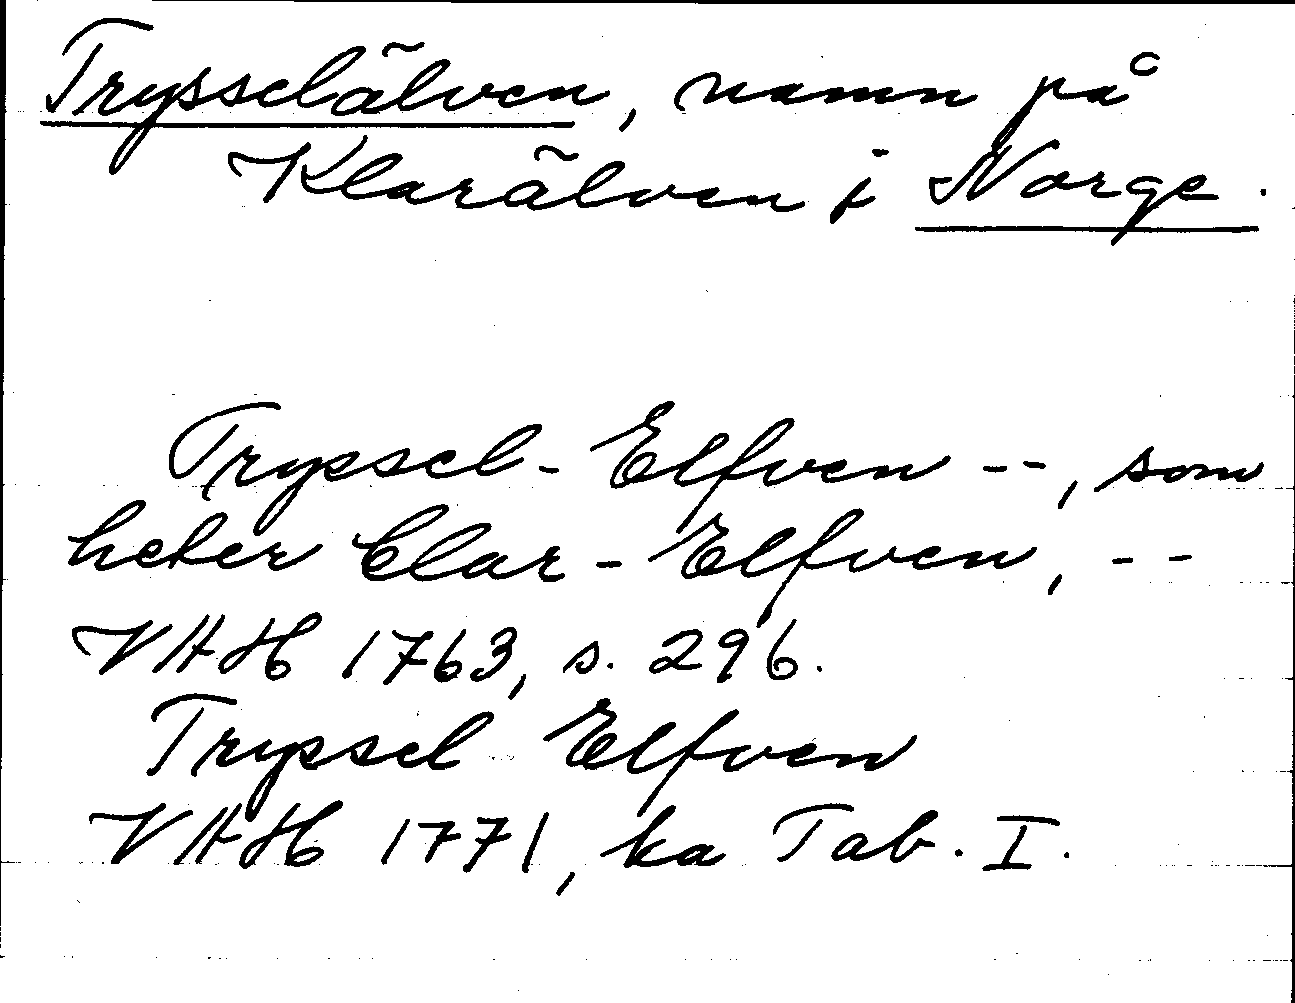 Trysselälven, namn på
Klarälven i Norge.
Tryssel-Elfven --, som
heter Clar-Elfven, --
VAH 1763, s. 296.
Tryssel Elfven
VAH 1771, ka Tab. I.